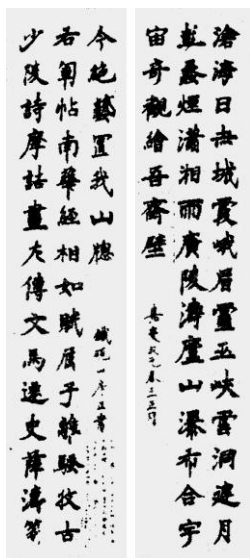 滄海日赤城霞峨眉雪巫峽雲洞庭月
彭蠡煙瀟湘雨廣陵濤廬山瀑布合宇
宙奇觀繪吾齋壁
少陵詩摩詰畫左傳文馬遷史薛濤箋
右軍帖南華經相如賦屈子離騷收古
今絕藝置我山牕